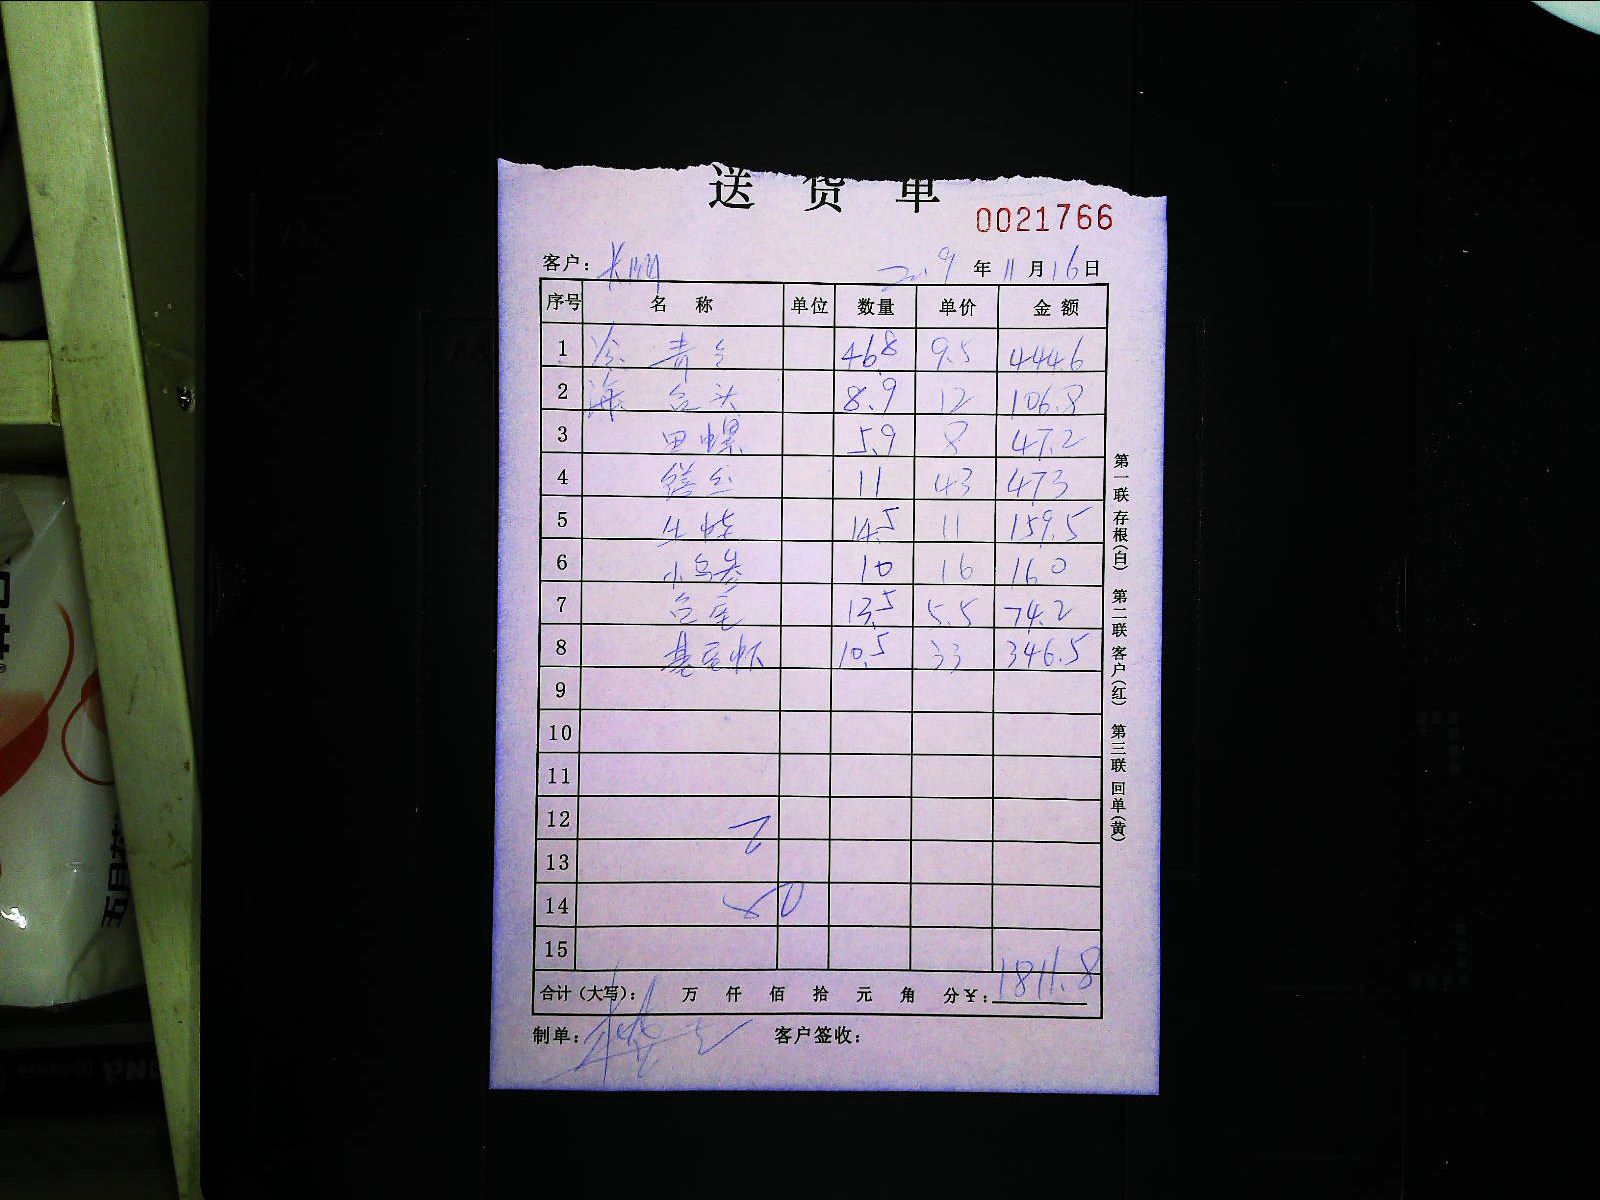 送货单
0021766
客户： 2019年11月16日
序号 名 称 单位 数量 单价 金额
1 冷 青 46.8 9.5 444.6
2 海 头 8.9 12 106.8
3 田螺 5.9 8 47.2
4 11 43 473
5 14.5 11 159.5
6 小乌参 10 16 160
7 13.5 5.5 74.2
8 基围虾 10.5 33 346.5
9
10
11
12
13
14
15
合计（大写）： 万 仟 佰 拾 元 角 分￥： 1811.8
制单： 客户签收：
第一联 存根（白） 第二联 客户（红） 第三联 回单（黄）
五月花